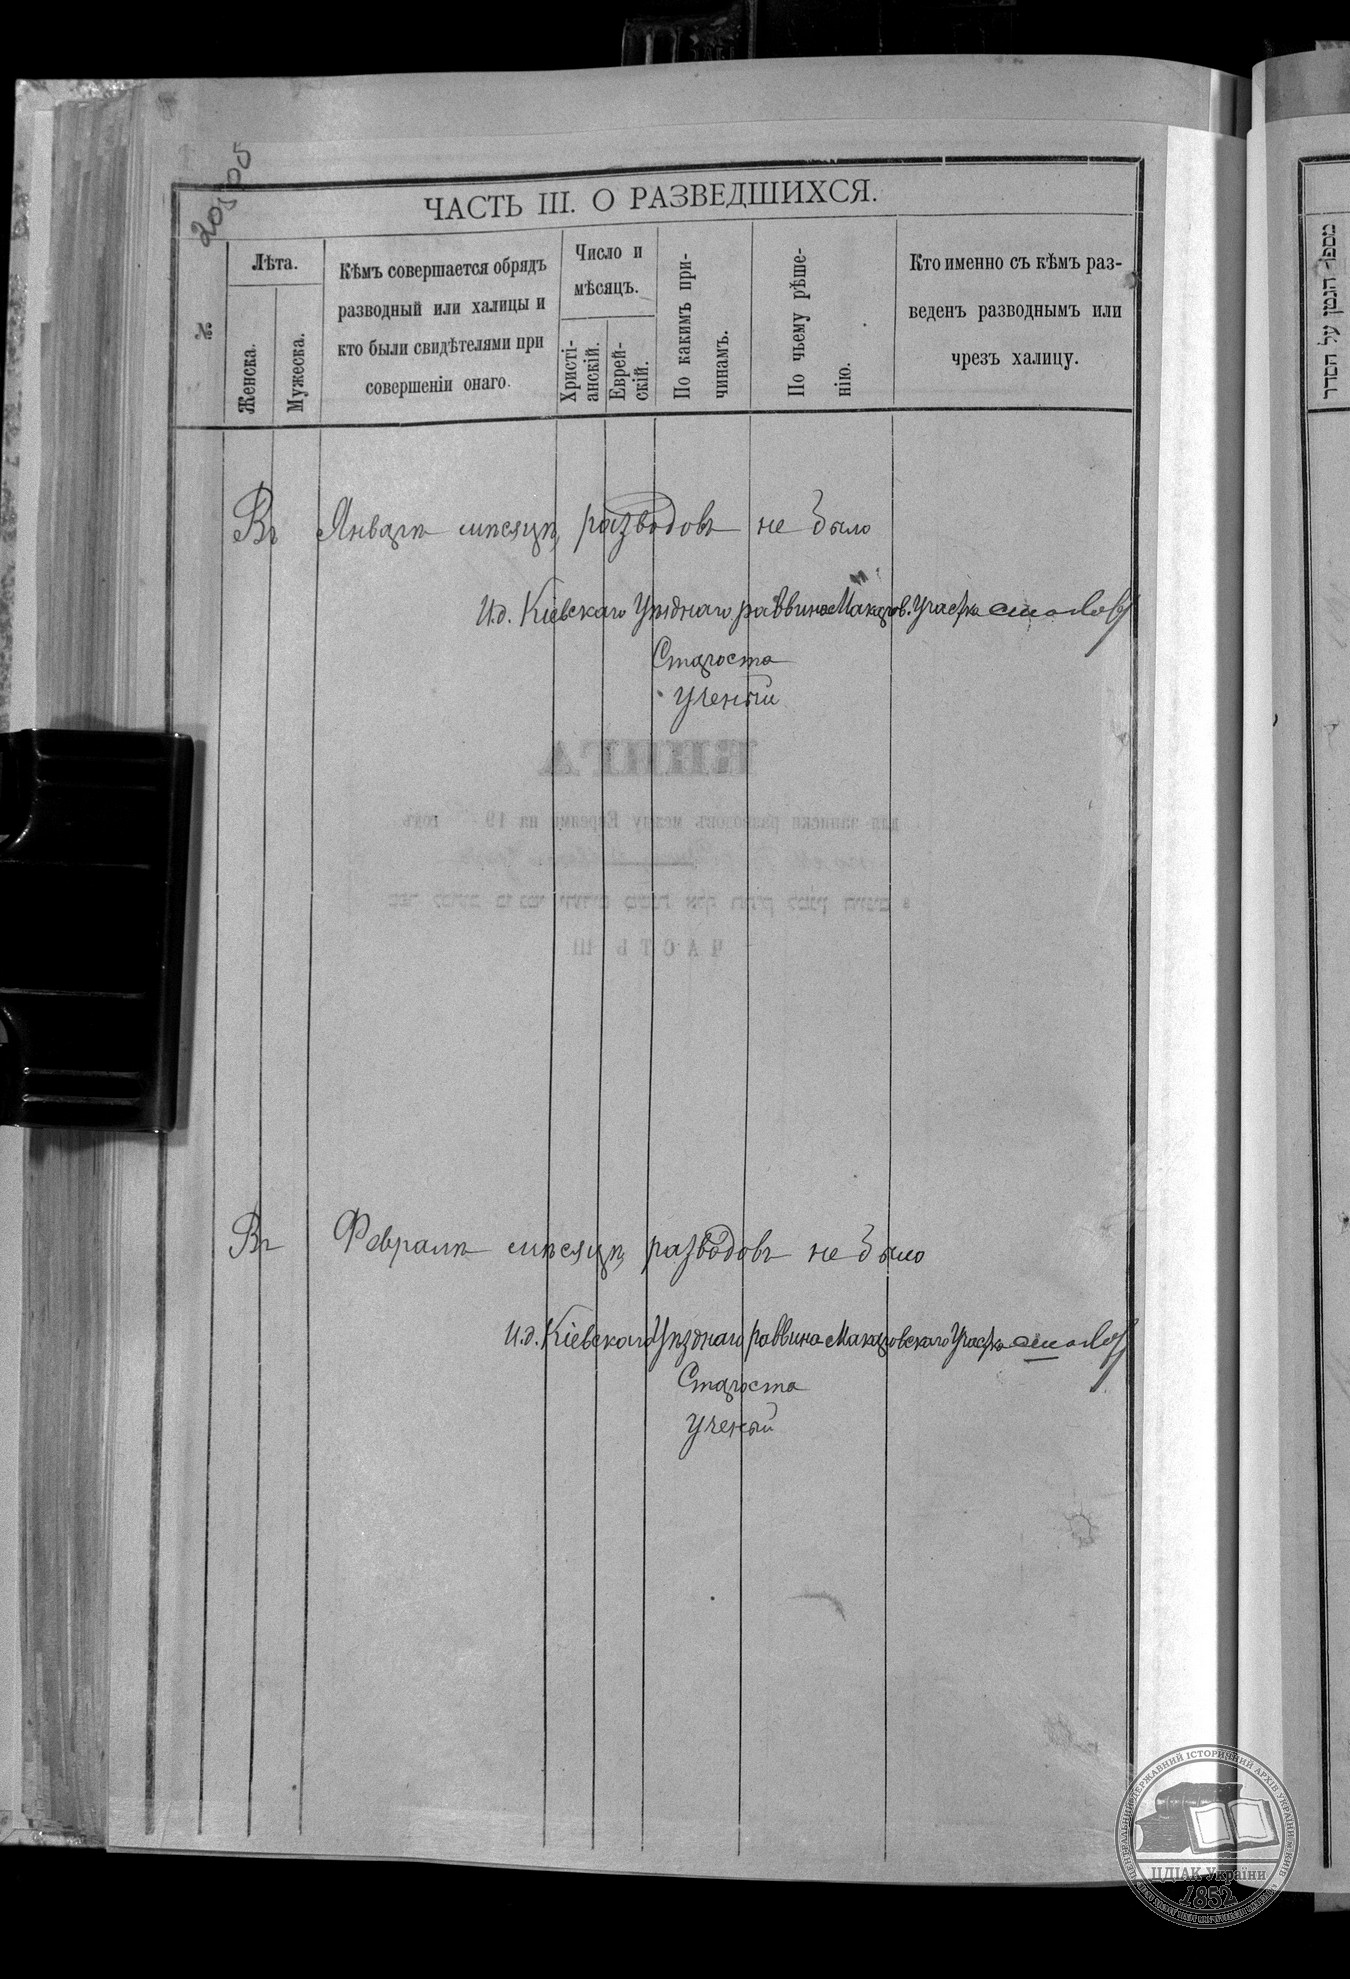 ЧАСТЬ III. О РАЗВЕДШИХСЯ.
№
Лѣта.
Женска.
Мужеска.
Кѣмъ совершается обрядъ
разводный или халицы и
кто были свидѣтелями при
совершеніи онаго.
Число и
мѣсяцъ.
Христі-
анскій.
Еврей-
скій.
По какимъ при-
чинамъ.
По чьему рѣше-
нію.
Кто именно съ кѣмъ раз-
веденъ разводнымъ или
чрезъ халицу.
Въ Январѣ мѣсяцѣ разводовъ не было
И.д. Кіевскаго Уѣзднаго раввина Макаров. Участка
Староста
Ученый
КНИГА
для записки разводовъ между Евреями на 19 годъ
ЧАСТЬ III
Въ Февралѣ мѣсяцѣ разводовъ не было
И.д. Кіевскаго Уѣзднаго раввина Макаровскаго Участка
Староста
Ученый
מספר הגטן על הסדר
ЦЕНТРАЛЬНИЙ ДЕРЖАВНИЙ ІСТОРИЧНИЙ АРХІВ УКРАЇНИ М.КИЇВ
ЦДІАК України
1852